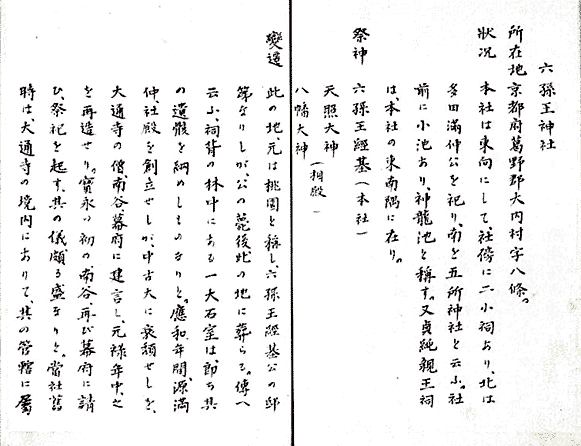 六孫王神社
所在地京都府葛野郡大内村字八條。
狀況　本社は東向にして社傍に二小祠あり、北は
多田滿仲公を祀り、南を五所神社と云ふ。社
前に小池あり、神龍池と稱す。又貞純親王祠
は、本社の東南隅に在り。
祭神　六孫王經基（本社）
天照大神
八幡大神（相殿）
變遷　此の地、元は桃園と稱し、六孫王經基公の邸
第なりしが、公の薨後此の地に葬らる。傳へ
云ふ、祠背の林叶にある一大石室は、即ち其
の遺骸を納めしものなりと。應和年間、源滿
仲、社殿を創立せしが、中古大に衰頽せしを、
大通寺の僧、南谷、幕府に建言し、元禄年中、之
を再造せり。寳永の初の南谷再び幕府に請
ひ、祭祀を起す、其の儀頗る盛なりと。當社舊
時は、大通寺の境内にありて、其の管轄に屬